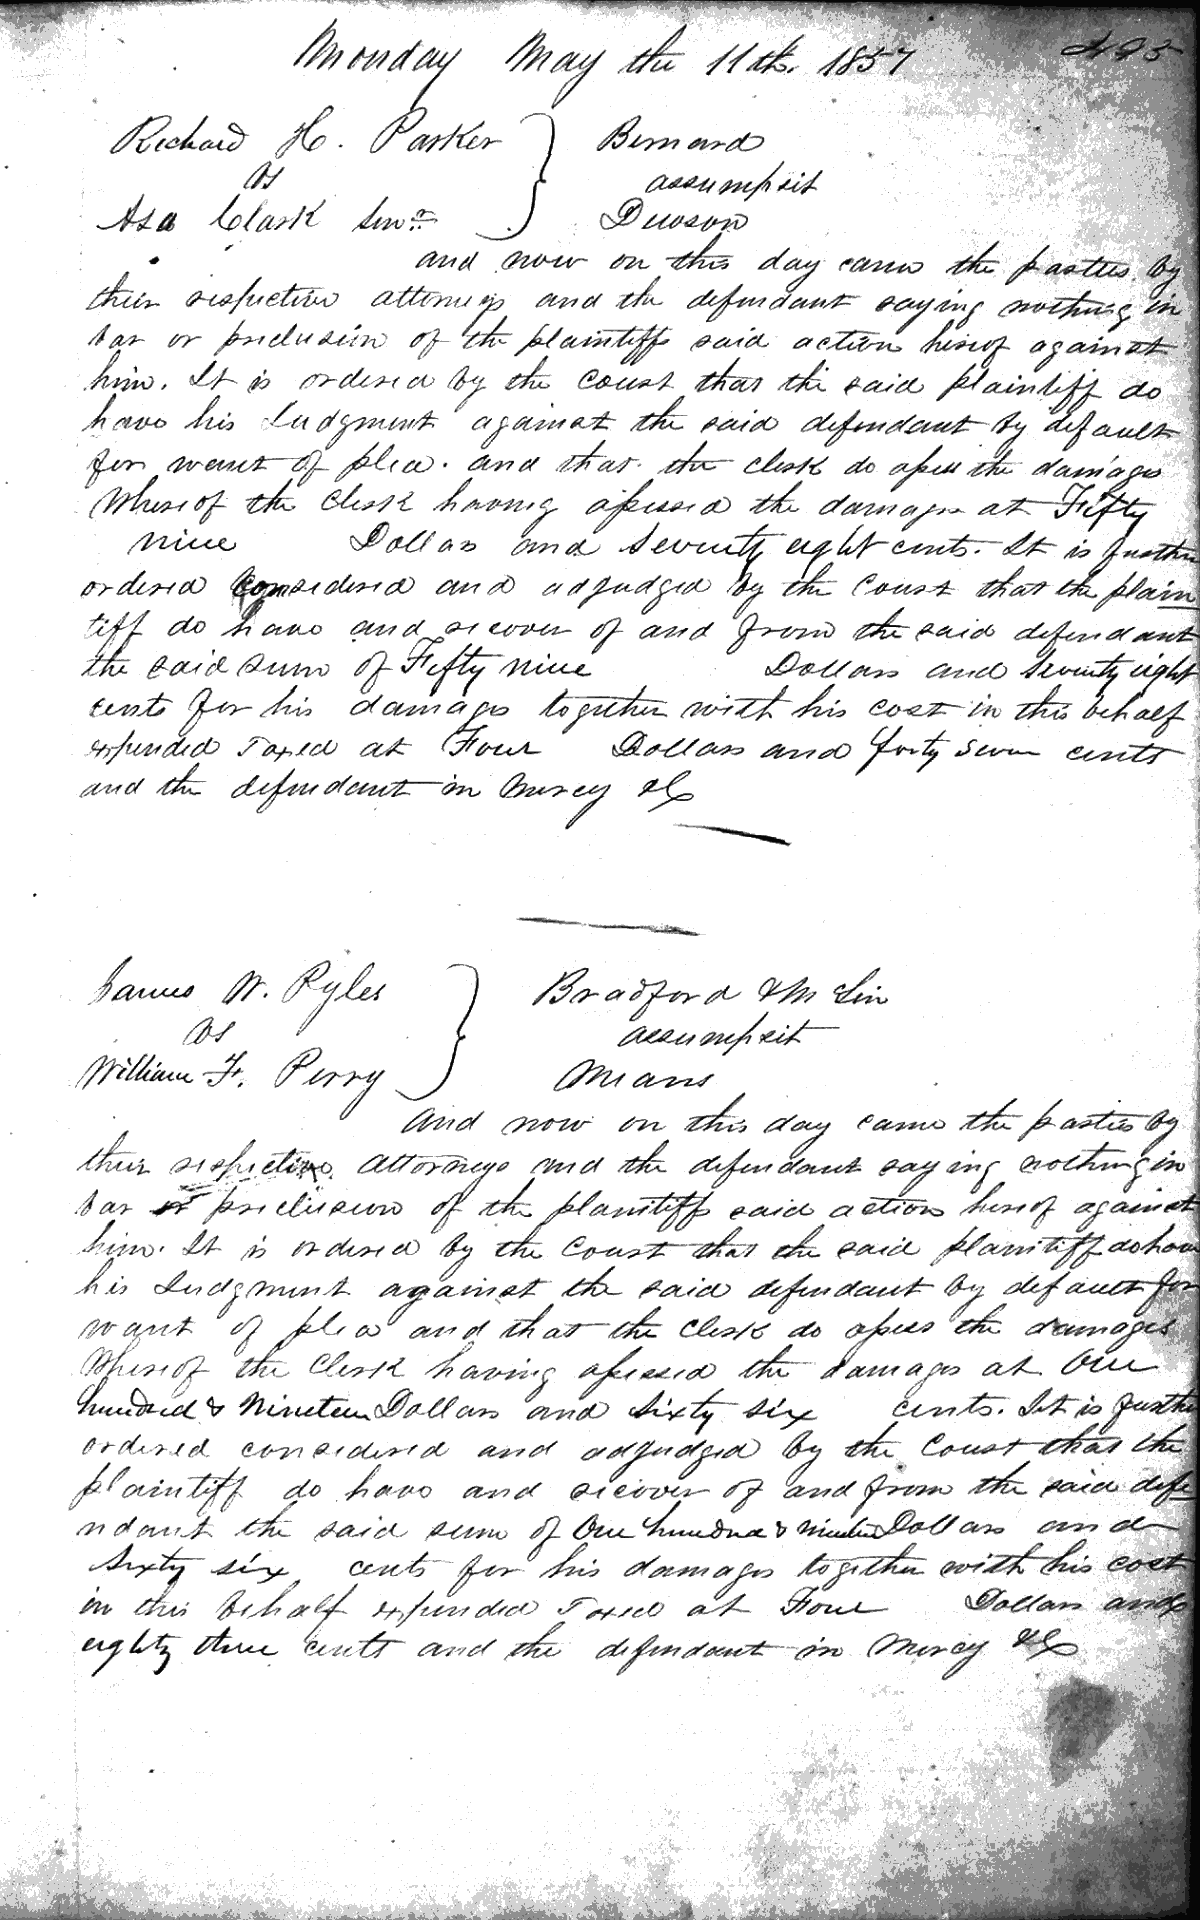 Monday May the 11th. 1857 495
Richard H. Parker } Bernard
vs assumpsit
Asa Clark Senr. Dewson
and now on this day came the parties by
their respective attorneys and the defendant saying nothing in
bar or preclusion of the plaintiffs said action hereof against
him. It is ordered by the Court that the said plaintiff do
have his Judgment against the said defendant by default
for want of plea. and that the clerk do assess the damages
Whereof the Clerk having assessed the damages at Fifty
nine Dollars and Seventy eight cents. It is further
ordered considered and adjudged by the Court that the plain
tiff do have and recover of and from the said defendant
the said sum of Fifty nine Dollars and Seventy eight
cents for his damages together with his cost in this behalf
expended Taxed at Four Dollars and forty Seven cents
and the defendant in mercy &c
James W. Pyles } Bradford & McLin
vs assumpsit
William F. Perry Means
And now on this day came the parties by
their respective Attorneys and the defendant saying nothing in
bar or preclusion of the plaintiffs said action hereof against
him. It is ordered by the Court that the said plaintiff do have
his Judgment against the said defendant by default for
want of plea and that the Clerk do assess the damages
Whereof the Clerk having assessed the damages at One
hundred & Nineteen Dollars and Sixty six cents. It is further
ordered considered and adjudged by the Court that the
plaintiff do have and recover of and from the said defe
ndant the said sum of One hundred & nineteen Dollars and
Sixty six cents for his damages together with his cost
in this behalf expended Taxed at Four Dollars and
eighty three cents and the defendant in mercy &c